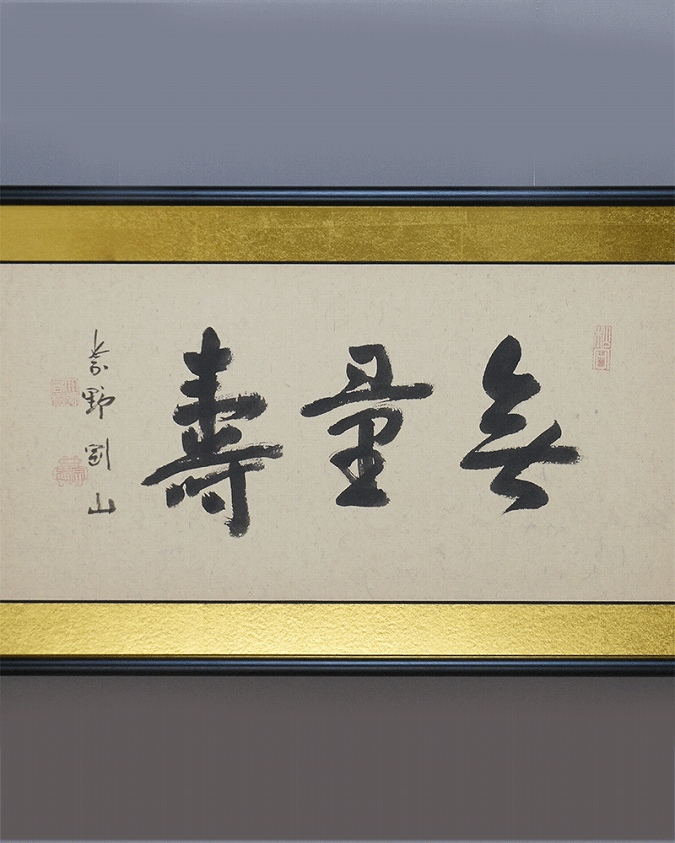 無量壽
野剛山